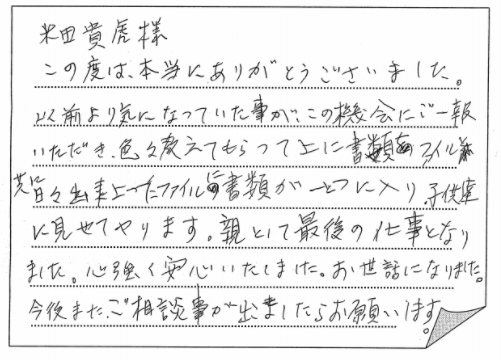 米田貴虎様
この度は、本当にありがとうございました。
以前より気になっていた事が、この機会にご一報
いただき、色々教えてもらって上に書類をファイル
出来上ったファイルに書類が一つに入り、子供達
に見せてやります。親として最後の仕事となり
ました。心強く安心いたしました。お世話になりました。
今後また、ご相談事が出ましたらお願いします。